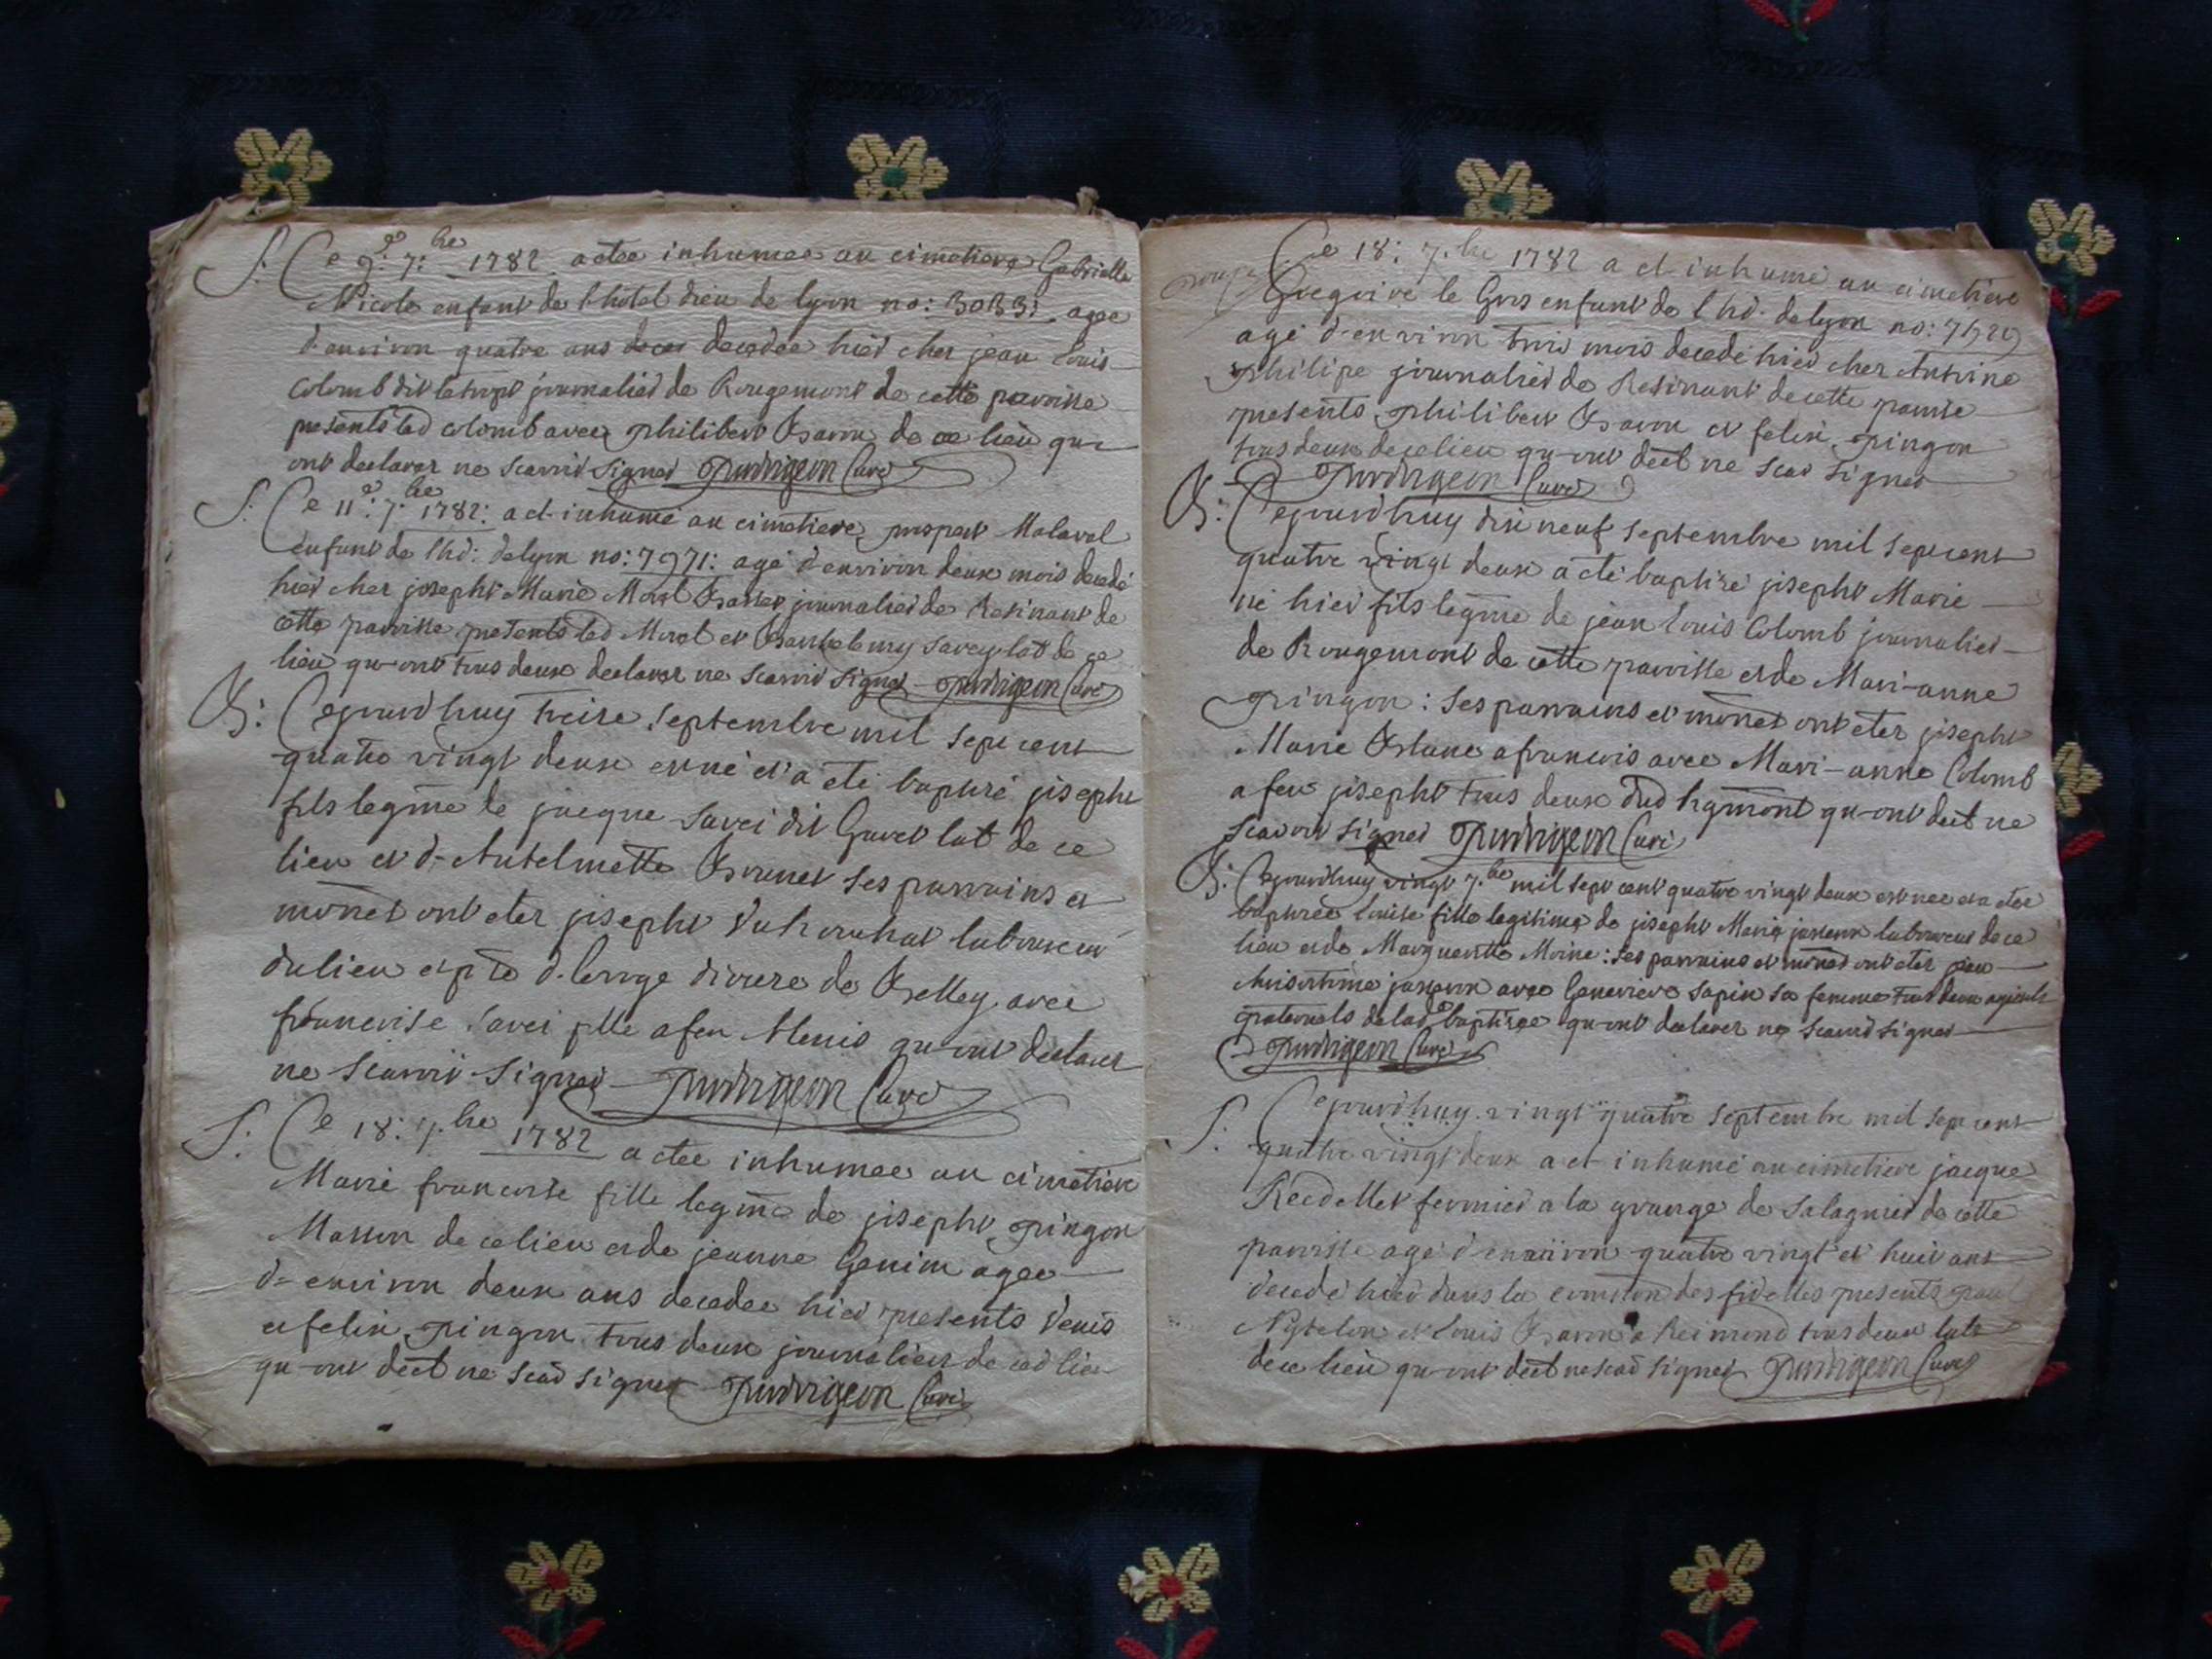 S: Ce 9e 7bre 1782 a etee inhumee au cimetiere Gabrielle
Nicole enfant de l-hotel dieu de lyon no: 3033: agee
d'environ quatre ans decedee hier cher jean louis
Colomb dit journalier de Rougemont de cette parroisse
presents led colomb avec philibert de ce lieu qui
ont declarer ne scavoir signer Curé
S: Ce 11e 7bre 1782: a et inhumé au cimetiere prosper Malaval
enfant de l hd: de lyon no: 7971: agé d'environ deux mois decedé
hier cher joseph Marie Morel journalier de Resinant de
cette parroisse presents led Morel et Barthelemy Savey lab de ce
lieu qu-ont tous deux declarer ne scavoir signer Curé
B: Cejourdhuy treise septembre mil sept cent
quatre vingt deux est né et a eté baptisé joseph
fils legme de jacque Savei dit lab de ce
lieu et d-Antelmette Brunet ses parrains et
ont eter joseph laboureur
du lieu de Belley avec
francoise Savei fille a feu qu-ont declarer
ne scavoir signer Curé
S: Ce 18: 7.bre 1782 a etee inhumee au cimetiere
Marie francoise fille legme de joseph pingon
Masson de ce lieu et de jeanne Genin agee
d-environ deux ans decedee hier presents Denis
et felix pingon tous deux journaliers de ced lieu
qu-ont declt ne scav signer Curé
Ce 18: 7.bre 1782 a et inhumé au cimetiere
Gregoire le Gros enfant de l hd. de lyon no:
agé d-environ trois mois decedé hier cher Antoine
philipe journalier de Resinant de cette parroisse
presents philibert et felix pingon
tous deux de ce lieu qu-ont declt ne scav signer
Curé
B: Cejourdhuy dix neuf septembre mil sept cent
quatre vingt deux a eté baptisé joseph Marie
né hier fils legme de jean louis Colomb journalier
de Rougemont de cette parroisse et de Mari-anne
pingon: ses parrains et ont eter joseph
Marie a francois avec Mari-anne Colomb
a feu joseph tous deux dud qu-ont declt ne
scavoir signer Curé
B: Cejourdhuy vingt 7.bre mil sept cent quatre vingt deux est nee et a etee
baptisee louise fille legitime de joseph Marie laboureur de ce
lieu et de Margueritte Moine: ses parrains et ont eter
avec Genevieve sapin sa femme tous deux
paternels de lade baptisee qu-ont declarer ne scavoir signer
Curé
S: Cejourdhuy vingt quatre septembre mil sept cent
quatre vingt deux a et inhumé au cimetiere jacque
fermier a la grange de Salagnier de cette
parroisse agé d'environ quatre vingt et huit ans
decedé hier dans la des fidelles presents paul
et louis tous deux lab
de ce lieu qu-ont declt ne scav signer Curé